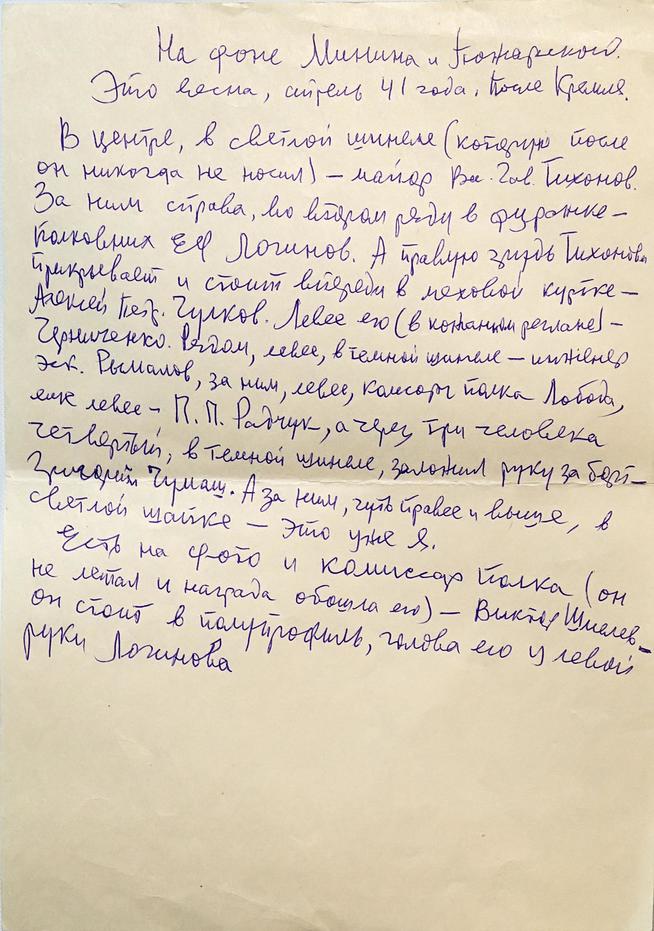 На фоне Минина и Пожарского.
Это весна, апрель 41 года. После Кремля.
В центре, в светлой шинели (которую после
он никогда не носил) – майор Вас. Гав. Тихонов.
За ним справа, во втором ряду в фуражке –
полковник ЕФ Логинов. А правую грудь Тихонова
прикрывает и стоит впереди в меховой куртке –
Алексей Петр. Гулков. Левее его (в кожаном реглане) –
Черниченко. Рядом, левее, в темной шинели – инженер
эск. Рысмалов, за ним, левее, комсорг полка Лобода,
еще левее – П.П. Радчук, а через три человека
четвертый, в темной шинели, заложил руку за борт –
Григорий Чумаш. А за ним, чуть правее и выше, в
светлой шапке – это уже я.
Есть на фото и комиссар полка (он
не летал и награда обошла его) – Виктор Шмелев –
он стоит в полупрофиль, голова его у левой
руки Логинова